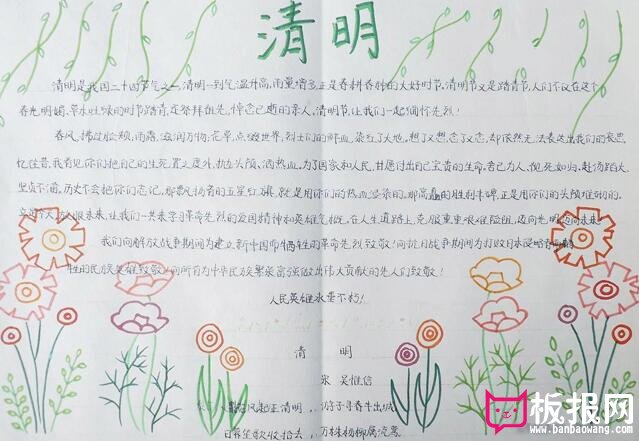 清明
清明是我国二十四节气之一,清明一到气温升高,雨量增多正是春耕春种的大好时节,清明节又是踏青节,人们不仅在这个
春光明媚、草木吐绿的时节踏青,还祭拜祖先,悼念已逝的亲人,清明节,让我们一起缅怀先烈!
春风,拂过脸颊,雨露,滋润万物;花草,点缀世界,烈士们的鲜血,染红了大地,想了又想,念了又念,却依然无法表达出我们的哀思,
忆往昔,我看见你们把自己的生死置之度外,抛头颅、洒热血,为了国家和人民,甘愿付出自己宝贵的生命。舍己为人,视死如归,赴汤蹈火
历史不会把你们忘记,那飘扬着的五星红旗,就是用你们的热血浸染的,那高矗的胜利丰碑,正是用你们的头颅堆砌的。
未来,让我们一共来学习革命先烈的爱国精神和英雄气概,在人生道路上,克服重重艰难险阻,迈向光明
我们向解放战争期间为建立新中国而牺牲的革命先烈致敬!向抗日战争期间为打败日本侵略者
牲的民族英雄致敬!向所有为中华民族繁荣富强做出伟大贡献的先人们致敬!
人民英雄永垂不朽!
清 明
宋 吴惟信
风起正清明,游子寻春半出城
日暮笙歌收拾去,万株杨柳属流莺
板报网
www.banbaowang.com